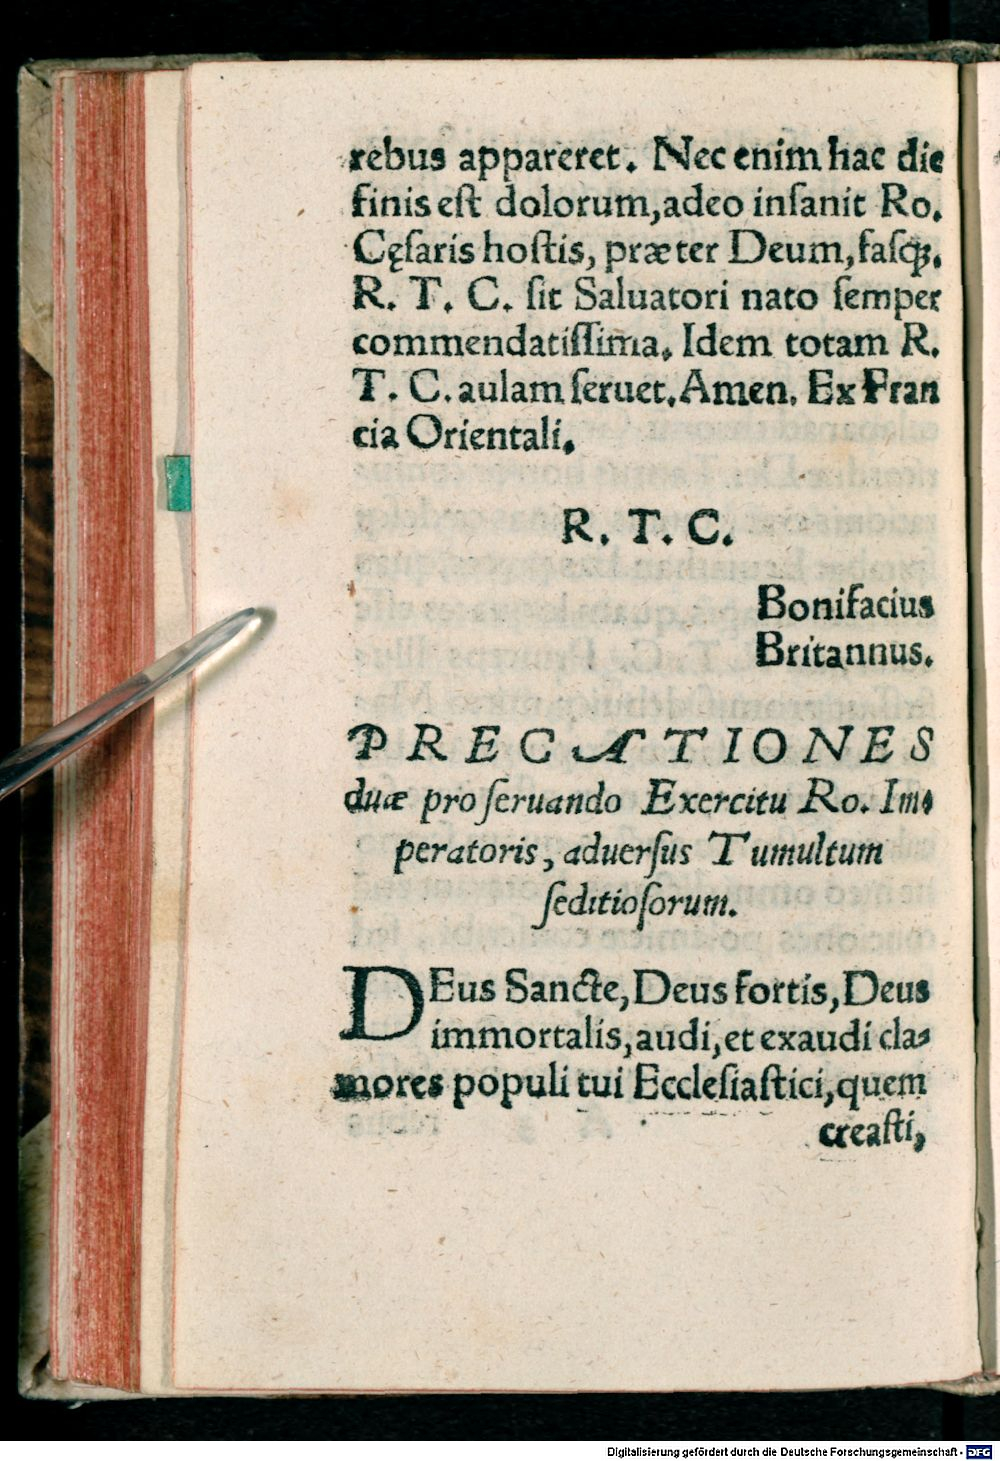 rebus appareret. Nec enim hac die
finis eſt dolorum, adeo inſanit Ro.
Cęſaris hoſtis, præter Deum, faſq́ꝫ.
R. T. C. ſit Saluatori nato ſemper
commendatiſſima. Idem totam R.
T. C. aulam ſeruet. Amen. Ex Fran
cia Orientali.
R. T. C.
Bonifacius
Britannus.
PRECATIONES
duæ pro ſeruando Exercitu Ro. Im⸗
peratoris, aduerſus Tumultum
ſeditioſorum.
DEus Sancte, Deus fortis, Deus
immortalis, audi, et exaudi cla⸗
mores populi tui Eccleſiaſtici, quem
creaſti,
Digitalisierung gefördert durch die Deutsche Forschungsgemeinschaft - DFG